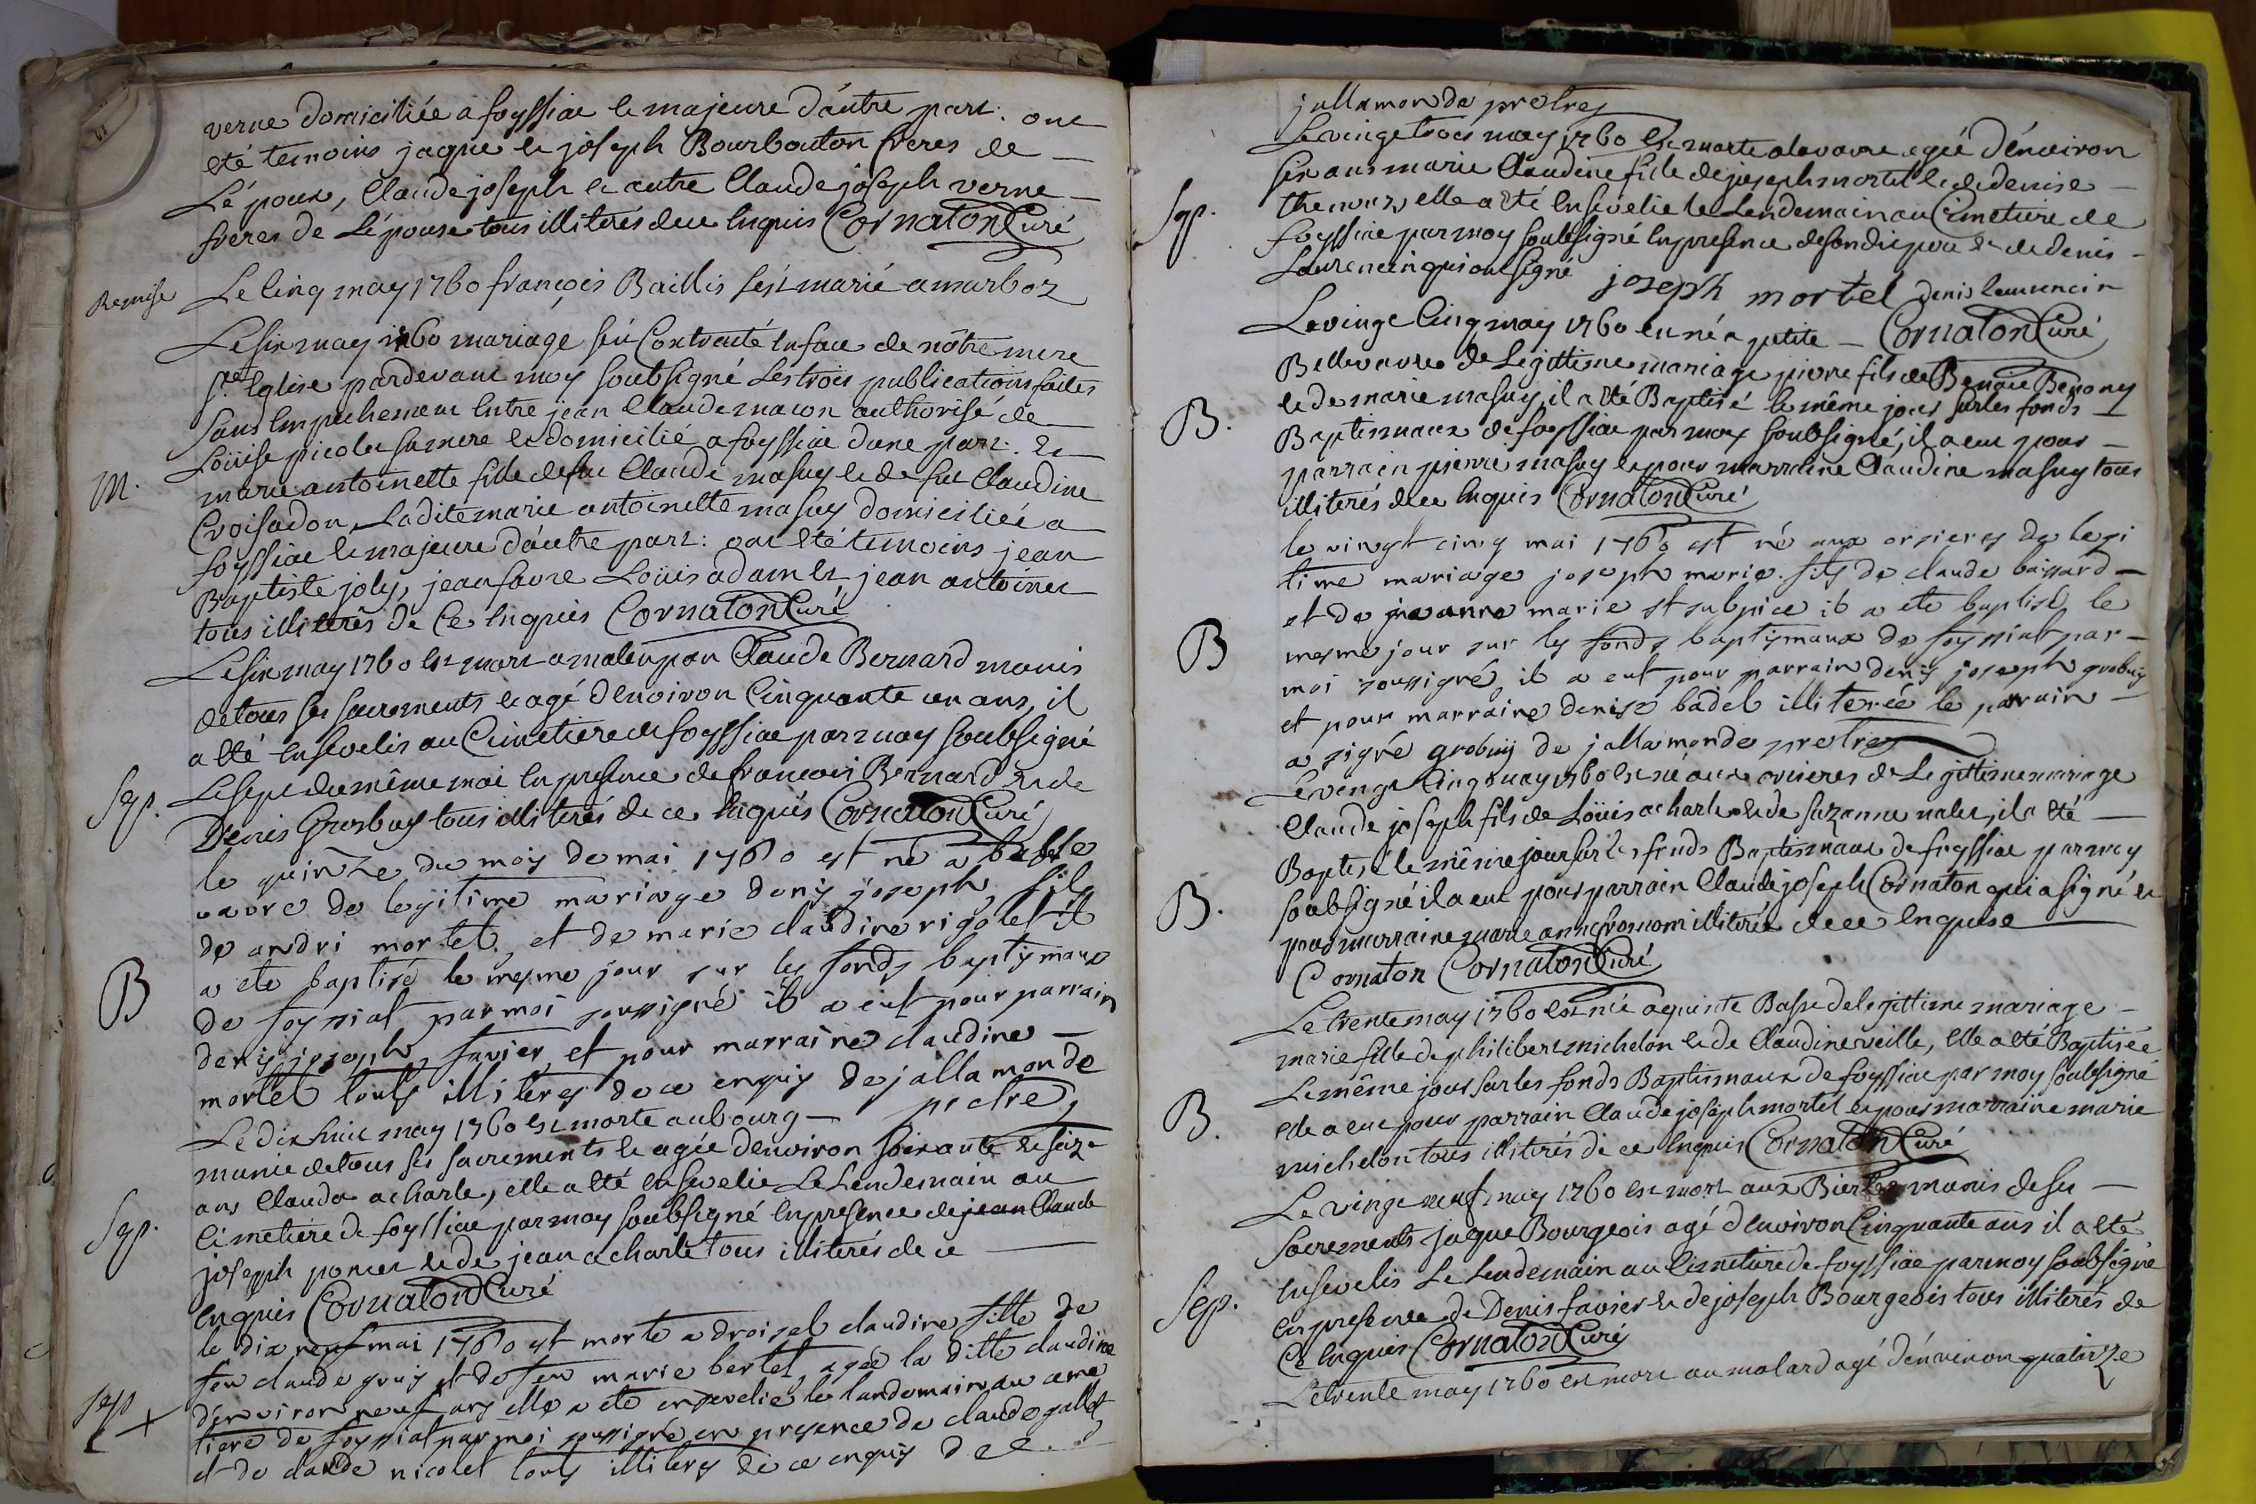 verne domiciliée a foyssiac le majeure d'autre part. ont
eté temoins jaque le joseph Bourbouton freres de
L'époux, Claude joseph le autre Claude joseph verne
freres de L'épouse tous illiterés de ce Enquis Cornaton Curé
Remise
Le Cinq may 1760 françois Baillis s'est marié a marboz
M.
Le six may 1760 mariage fut Contracté En face de nôtre mere
Ste Eglise pardevant moy soubsigné Les trois publications faites
sans Empechement Entre jean Claude macon authorisé de
Loüise picolet sa mere le domicilié a foyssiac d'une part. Et
marie antoinette fille de feu Claude masuy le de feu Claudine
Croisadon, Ladite marie antoinette masuy domiciliée a
foyssiac le majeure d'autre part: ont Eté temoins jean
Baptiste joly, jean favre Loüis adam Et jean antoine
tous illiterés de Ce Enquis Cornaton Curé
Sep.
Le six may 1760 Est mort a malenpon Claude Bernard munis
de tous ses sacrements le agé d'Environ Cinquante un ans, il
a Eté Ensevelis au Cimetiere de foyssiac par moy soubsigné
Le sept du même moi En presence de francois Bernard Et de
Denis Grosbuy tous illiterés de ce Enquis Cornaton Curé
B
le quinze du moy de mai 1760 est né a belle
vavre de legitime mariage deny joseph fils
de andri mortel et de marie claudine rigolet il
a eté baptisé le mesme jour sur les fonds baptismaux
de foyssiat par moi soussigné il a eut pour parrain
deny joseph favier et pour marraine claudine
mortel touts illiterez de ce enquis de jallamonde
pretre
Sep.
Le dix huit may 1760 Est morte au bourg
munie de tous ses sacrements le agée d'environ soixante le seize
ans Clauda acharle, elle a Eté Ensevelie Le Lendemain au
Cimetiere de foyssiac par moy soubsigné En presence de jean Claude
joseph poncet le de jean acharle tous illiterés de ce
Enquis Cornaton Curé
Sep
le dix neuf mai 1760 est morte a droisel claudine fille de
feu claude et de feu marie bertel, agée la ditte claudine
d'environ neuf ans elle a eté ensevelie le landemain au ceme
tiere de foyssiat par moi soussigné en presence de claude gallet
et de claude nicolet touts illiterez de ce enquis
jallamonde pretres
Sep.
Le vingt trois may 1760 Est morte a lavavre agée d'énviron
six ans marie Claudine fille de joseph mortel le de denise
thevenon, elle a Eté Ensevelie le Lendemain au Cimetiere de
foyssiac par moy soubsigné En presence de son dit pere Et de denis
Laurencin qui ont signé joseph mortel denis laurencin
Cornaton Curé
B.
Le vingt Cinq may 1760 est né a petite
Bellevavre de Legittime mariage pierre fils de Benoit Benony
le de marie masuy, il a Eté Baptisé le même jour sur les fonds
Baptismaux de foyssiac par moy soubsigné, il a eut pour
parrain pierre masuy le pour marraine Claudine masuy tous
illiterés de ce Enquis Cornaton Curé
B
le vingt cinq mai 1760 est né aux orsieres de legi
time mariage joseph marie fils de claude baissard
et de jeanne marie st sulpice il a eté baptisé le
mesme jour sur les fonds baptismaux de foyssiat par
moi soussigné, il a eut pour parrain deny joseph grobuy
et pour marraine denise badel illiterée le parrain
a signé grobuy de jallamonde pretres
B.
Le vingt Cinq may 1760 Est né aux orsieres de Legittime mariage
Claude joseph fils de Loüis acharle le de suzanne nalet, il a Eté
Baptisé le même jour sur les fonds Baptismaux de foyssiac par moy
soubsigné il a eut pour parrain Claude joseph Cornaton qui a signé Et
pour marraine marie anne fromom illiterée de ce Enquise
Cornaton Cornaton Curé
B.
Le trente may 1760 Est née a pointe Basse de legittime mariage
marie fille de philibert michelon le de Claudine veille, elle a Eté Baptisée
Le même jour sur les fonds Baptismaux de foyssiac par moy soubsigné
elle a eut pour parrain Claude joseph mortel le pour marraine marie
michelon tous illiterés de ce Enquis Cornaton Curé
Sep.
Le vingt neuf may 1760 Est mort aux Bierles munis de ses
sacrements jaque Bourgeois agé d'Environ Cinquante ans il a Eté
Ensevelis Le Lendemain au Cimetiere de foyssiac par moy soubsigné
En presence de Denis favier le de joseph Bourgeois tous illiterés de
Ce Enquis Cornaton Curé
Le trente may 1760 Est mort au molard agé d'énviron quatorze